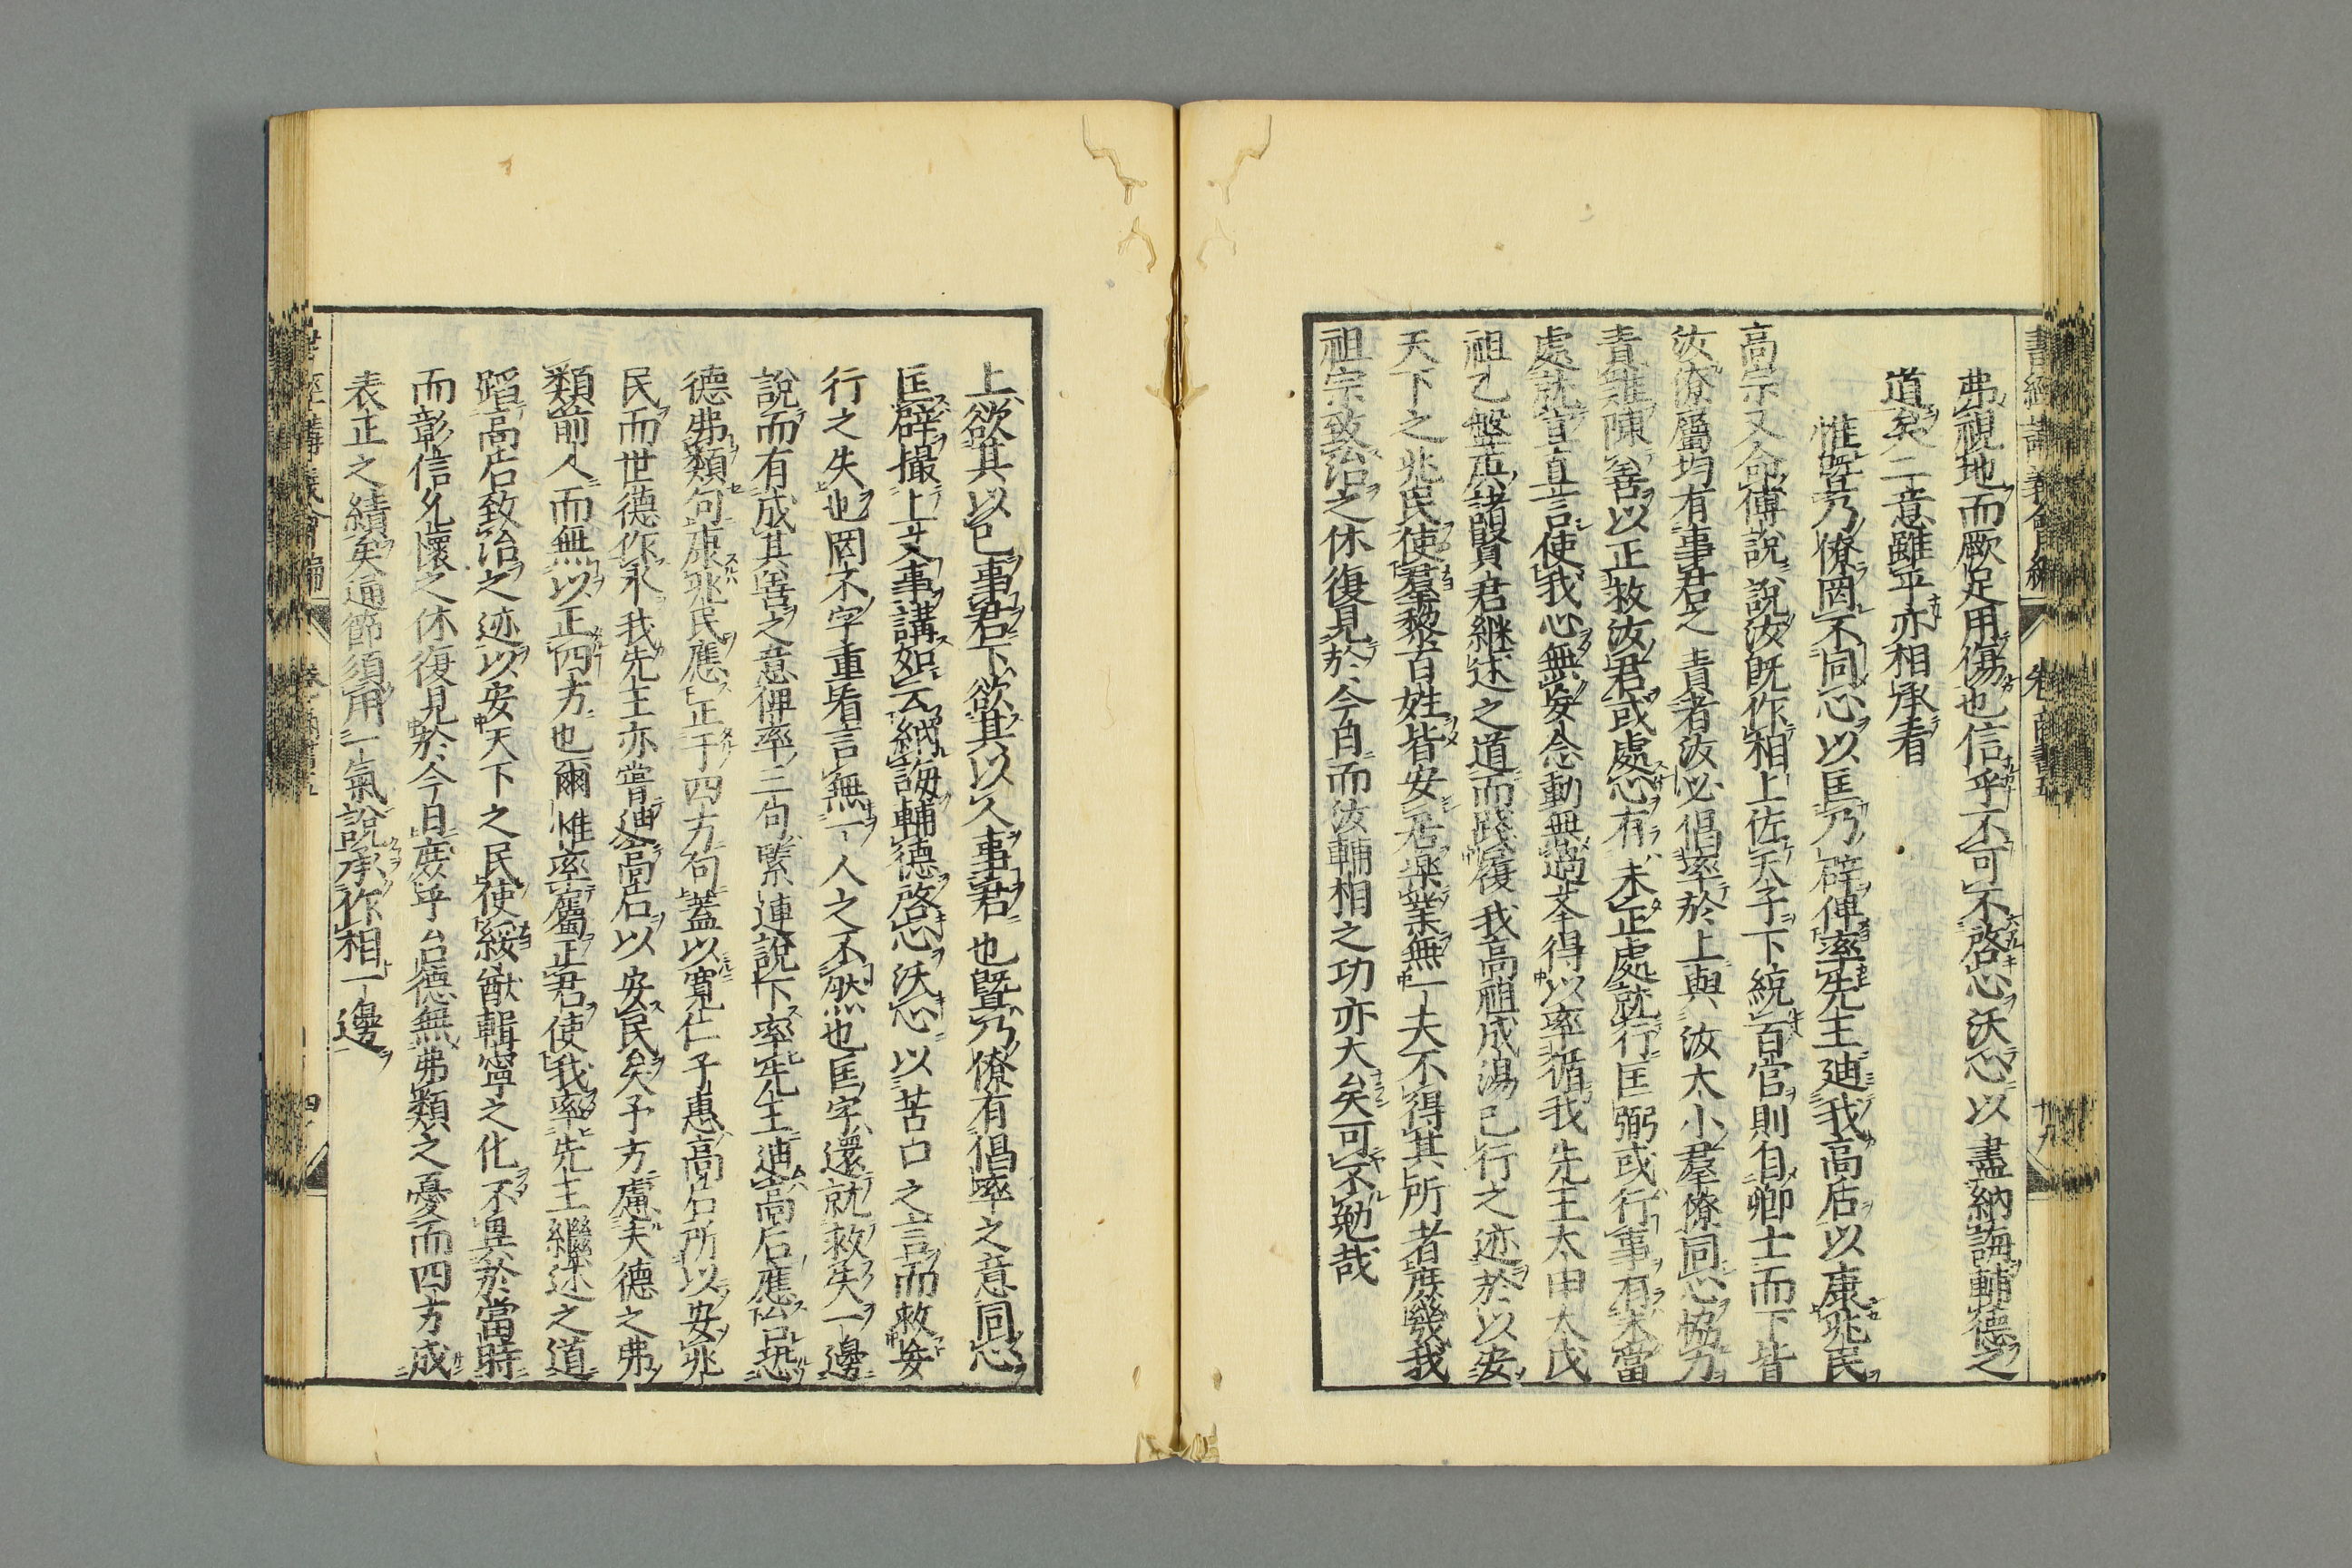 弗視地而厥足用傷也信乎不可不啓心沃心以盡納誨輔德之
道矣二意雖平亦相承看
惟曁乃僚罔不同心以匡乃辟俾率先王迪我高后以康兆民
高宗又命傅說說汝旣作相上佐天子下統百官則自卿士而下皆
汝僚屬均有事君之責者汝必倡率於上與汝大小羣僚同心協力
責難陳善以正救汝君或處心有未正處就行匡弼或行事有未當
處就宜直言使我心無妄念動無過差得以率循我先王太甲太戊
祖乙盤庚諸賢君継述之道而踐履我高祖成湯已行之迹於以安
天下之兆民使羣黎百姓皆安居樂業無一夫不得其所者庶幾我
祖宗致治之休復見於今日而汝輔相之功亦大矣可不勉哉
書經講義會編
卷
十九
上欲其以己事君下欲其以人事君也曁乃僚有倡率之意同心
匡辟撮上文事講如云納誨輔德啓心沃心以苦口之言而救妄
行之失也罔不字重看言無一人之不然也匡字還就救失一邊
說而有成其善之意俾率三句緊連說下率先王迪高后應台恐
德弗類句康兆民應正于四方句蓋以寬仁子惠高后所以安兆
民而世德作求我先王亦嘗迪高后以安民矣予方慮夫德之弗
類前人而無以正四方也爾惟率屬正君使我率先王繼述之道
蹈高后致治之迹以安天下之民使綏猷輯寧之化不異於當時
而彰信允懷之休復見於今日庶乎台德無弗類之憂而四方成
表正之績矣通節須用一氣說承作相一邊